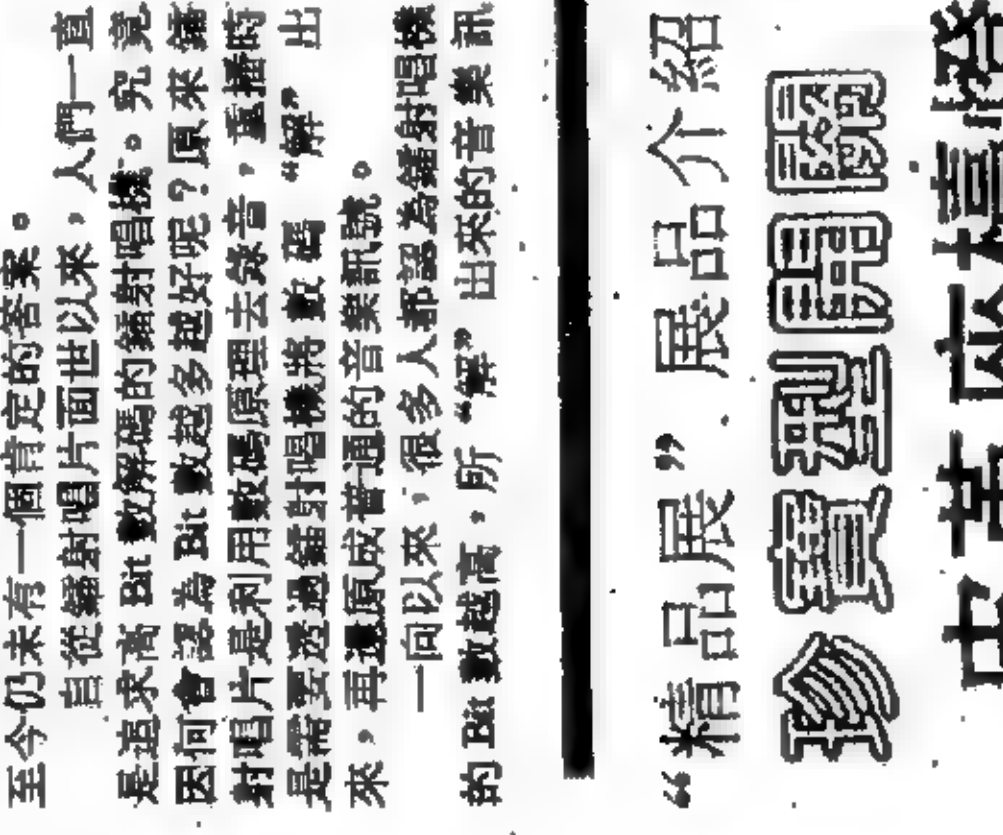 至今仍未有一個肯定的答案。
自從鐳射唱片面世以來，人們一直
是追求高 Bit 數解碼的鐳射唱機。究竟
因何會認為 Bit 數越多越好呢？原來鐳
射唱片是利用數碼原理去錄音，重播時
是需要透過鐳射唱機將數碼“解”出
來，再還原成普通的音樂訊號。
一向以來，很多人都認為鐳射唱機
的 Bit 數越高，所“解”出來的音樂訊
“精品展”展品介紹
珍寶型開關